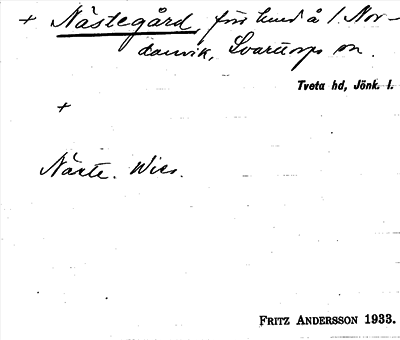 + Nästegård, förr hmd å 1. Nor-
danvik, Svarttorps sn.
Tveta hd, Jönk. l.
+
Närte. Wies.
FRITZ ANDERSSON 1933.